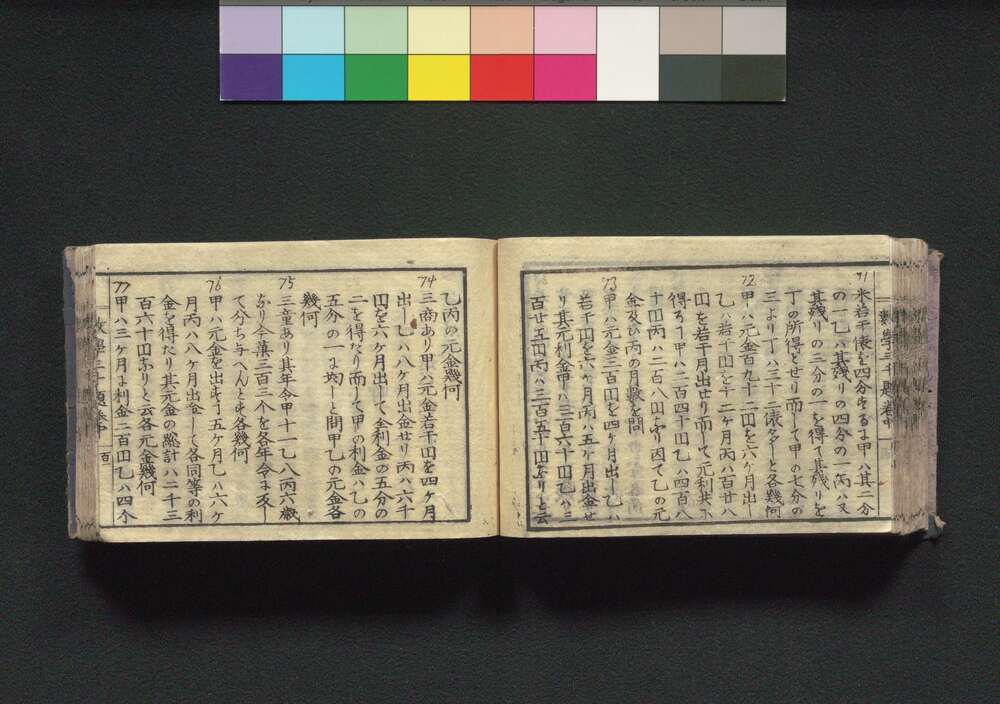 71
米若干俵を四分するに甲ハ其二分
の一乙ハ其残りの四分の一丙ハ又
其残りの三分の一を得て其残りを
丁の所得とせり而して甲の七分の
三より丁ハ三十二俵多しと各幾何
72
甲ハ元金百九十二円を六ケ月出し
乙ハ若干円を十二ケ月丙ハ百廿八
円を若干月出せり而して元利共に
得る𬼀甲ハ二百四十円乙ハ四百八
十円丙ハ二百八円なり因て乙の元
金及ひ丙の月数を問
73
甲ハ元金三百円を四ケ月出し乙ハ
若干円を六ケ月丙ハ五ケ月出金せ
り其元利金甲ハ三百六十円乙ハ三
百廿五円丙ハ三百五十円なりと云
乙丙の元金幾何
74
三商あり甲ハ元金若干円を四ケ月
出し乙ハ八ケ月出金せり丙ハ六千
円を六ケ月出して全利金の五分の
二を得たり而して甲の利金ハ乙の
五分の一に均しと問甲乙の元金各
幾何
75
三童あり其年令甲十一乙八丙六歳
なり今菓三百三个を各年令に反し
て分ち与へんとす各幾何
76
甲ハ元金を出す𬼀五ケ月乙ハ六ケ
月丙ハ八ケ月出金して各同等の利
金を得たり其元金の総計ハ二千三
百六十円なりと云各元金幾何
77
甲ハ三ケ月に利金二百円乙ハ四个
数学三千題巻中
百一